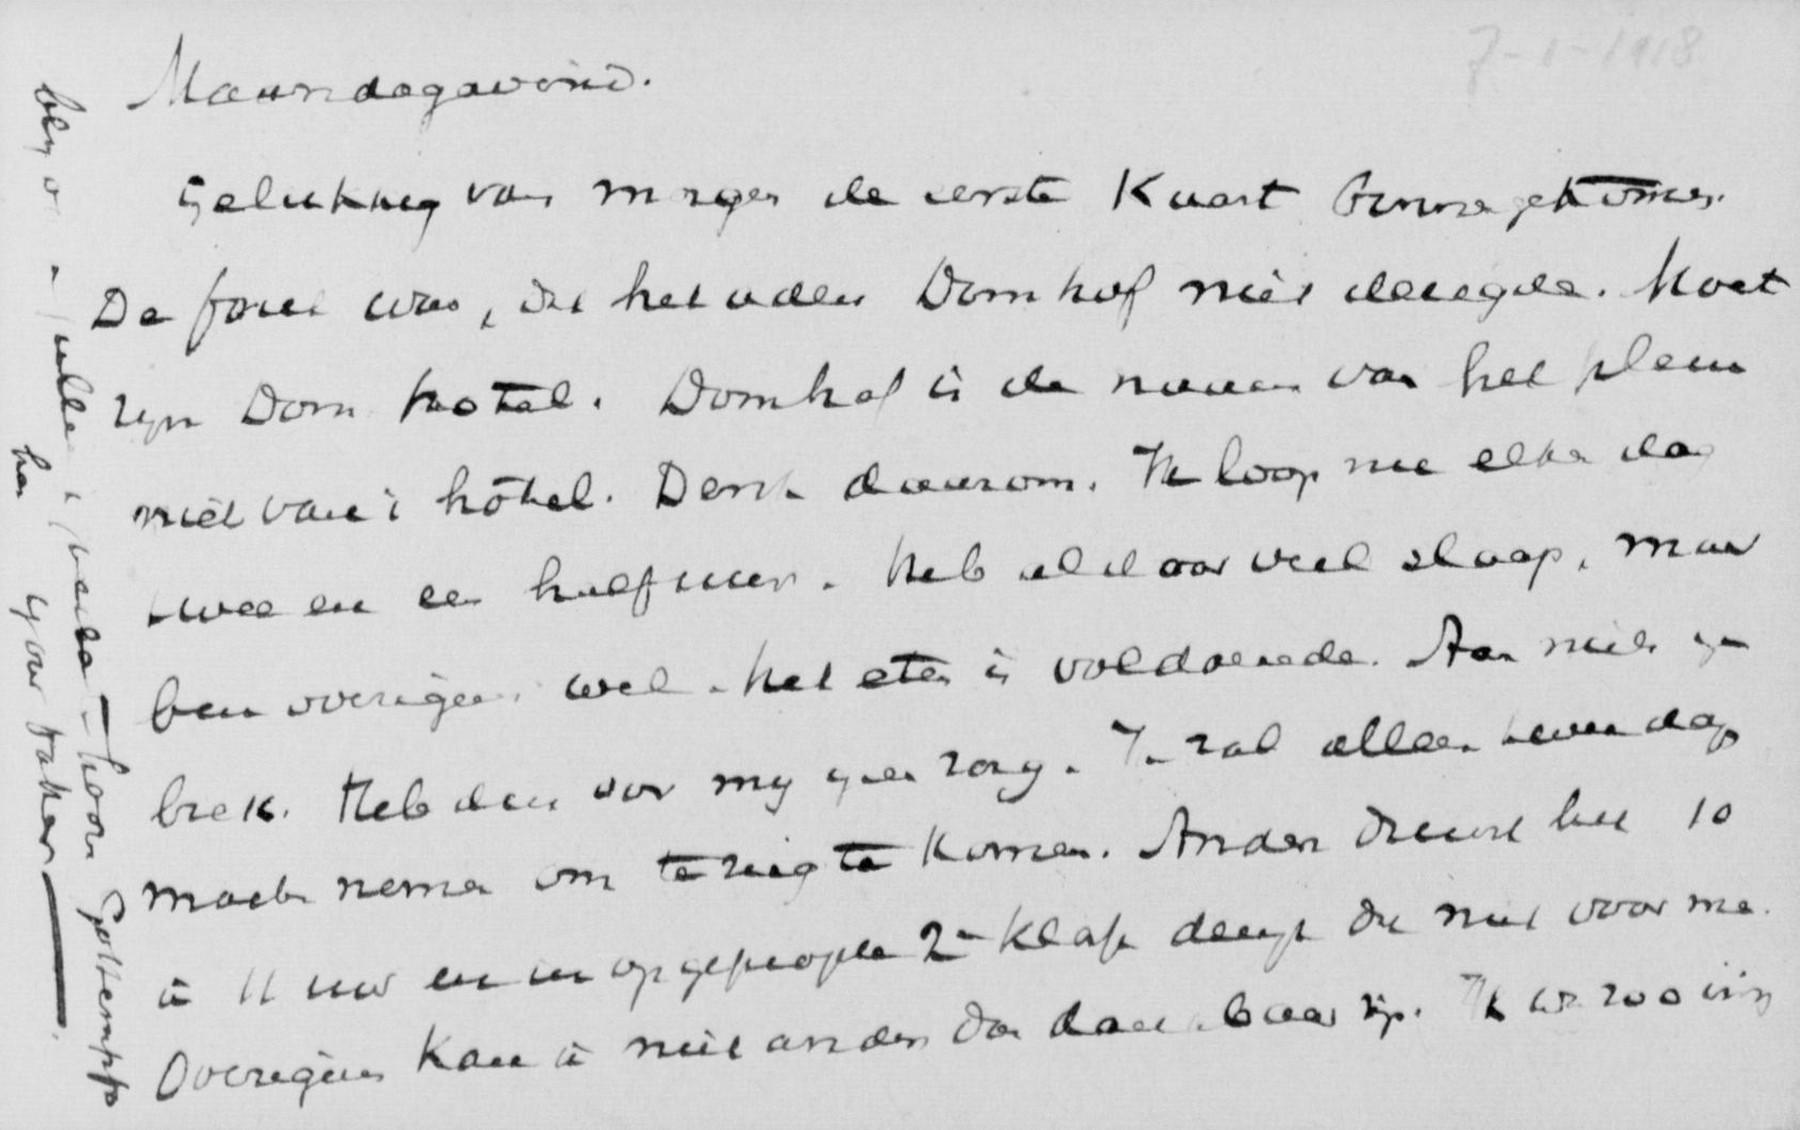 7-1-1918
Maandagavond.
Gelukkig van morgen de eerste Kaart binnengekomen.
De fout was, dat het adres Domhof niet deugde. Moet
zijn Dom hotel. Domhof is de naam van het plein
niet van 't hôtel. Denk daarom. Ik loop nu elke dag
twee en een half uur. Heb aldoor veel slaap, maar
ben overigens wel. Het eten is voldoende. Aan niets ge-
brek. Heb dus voor mij geen zorg. Ik zal alleen twee dagen
moeten nemen om terug te komen. Anders duurt het 10
à 11 uur en in opgepropte 2e Klasse deugt dat niet voor me.
Overigens Kan ik niet anders dan dankbaar zijn. Ik